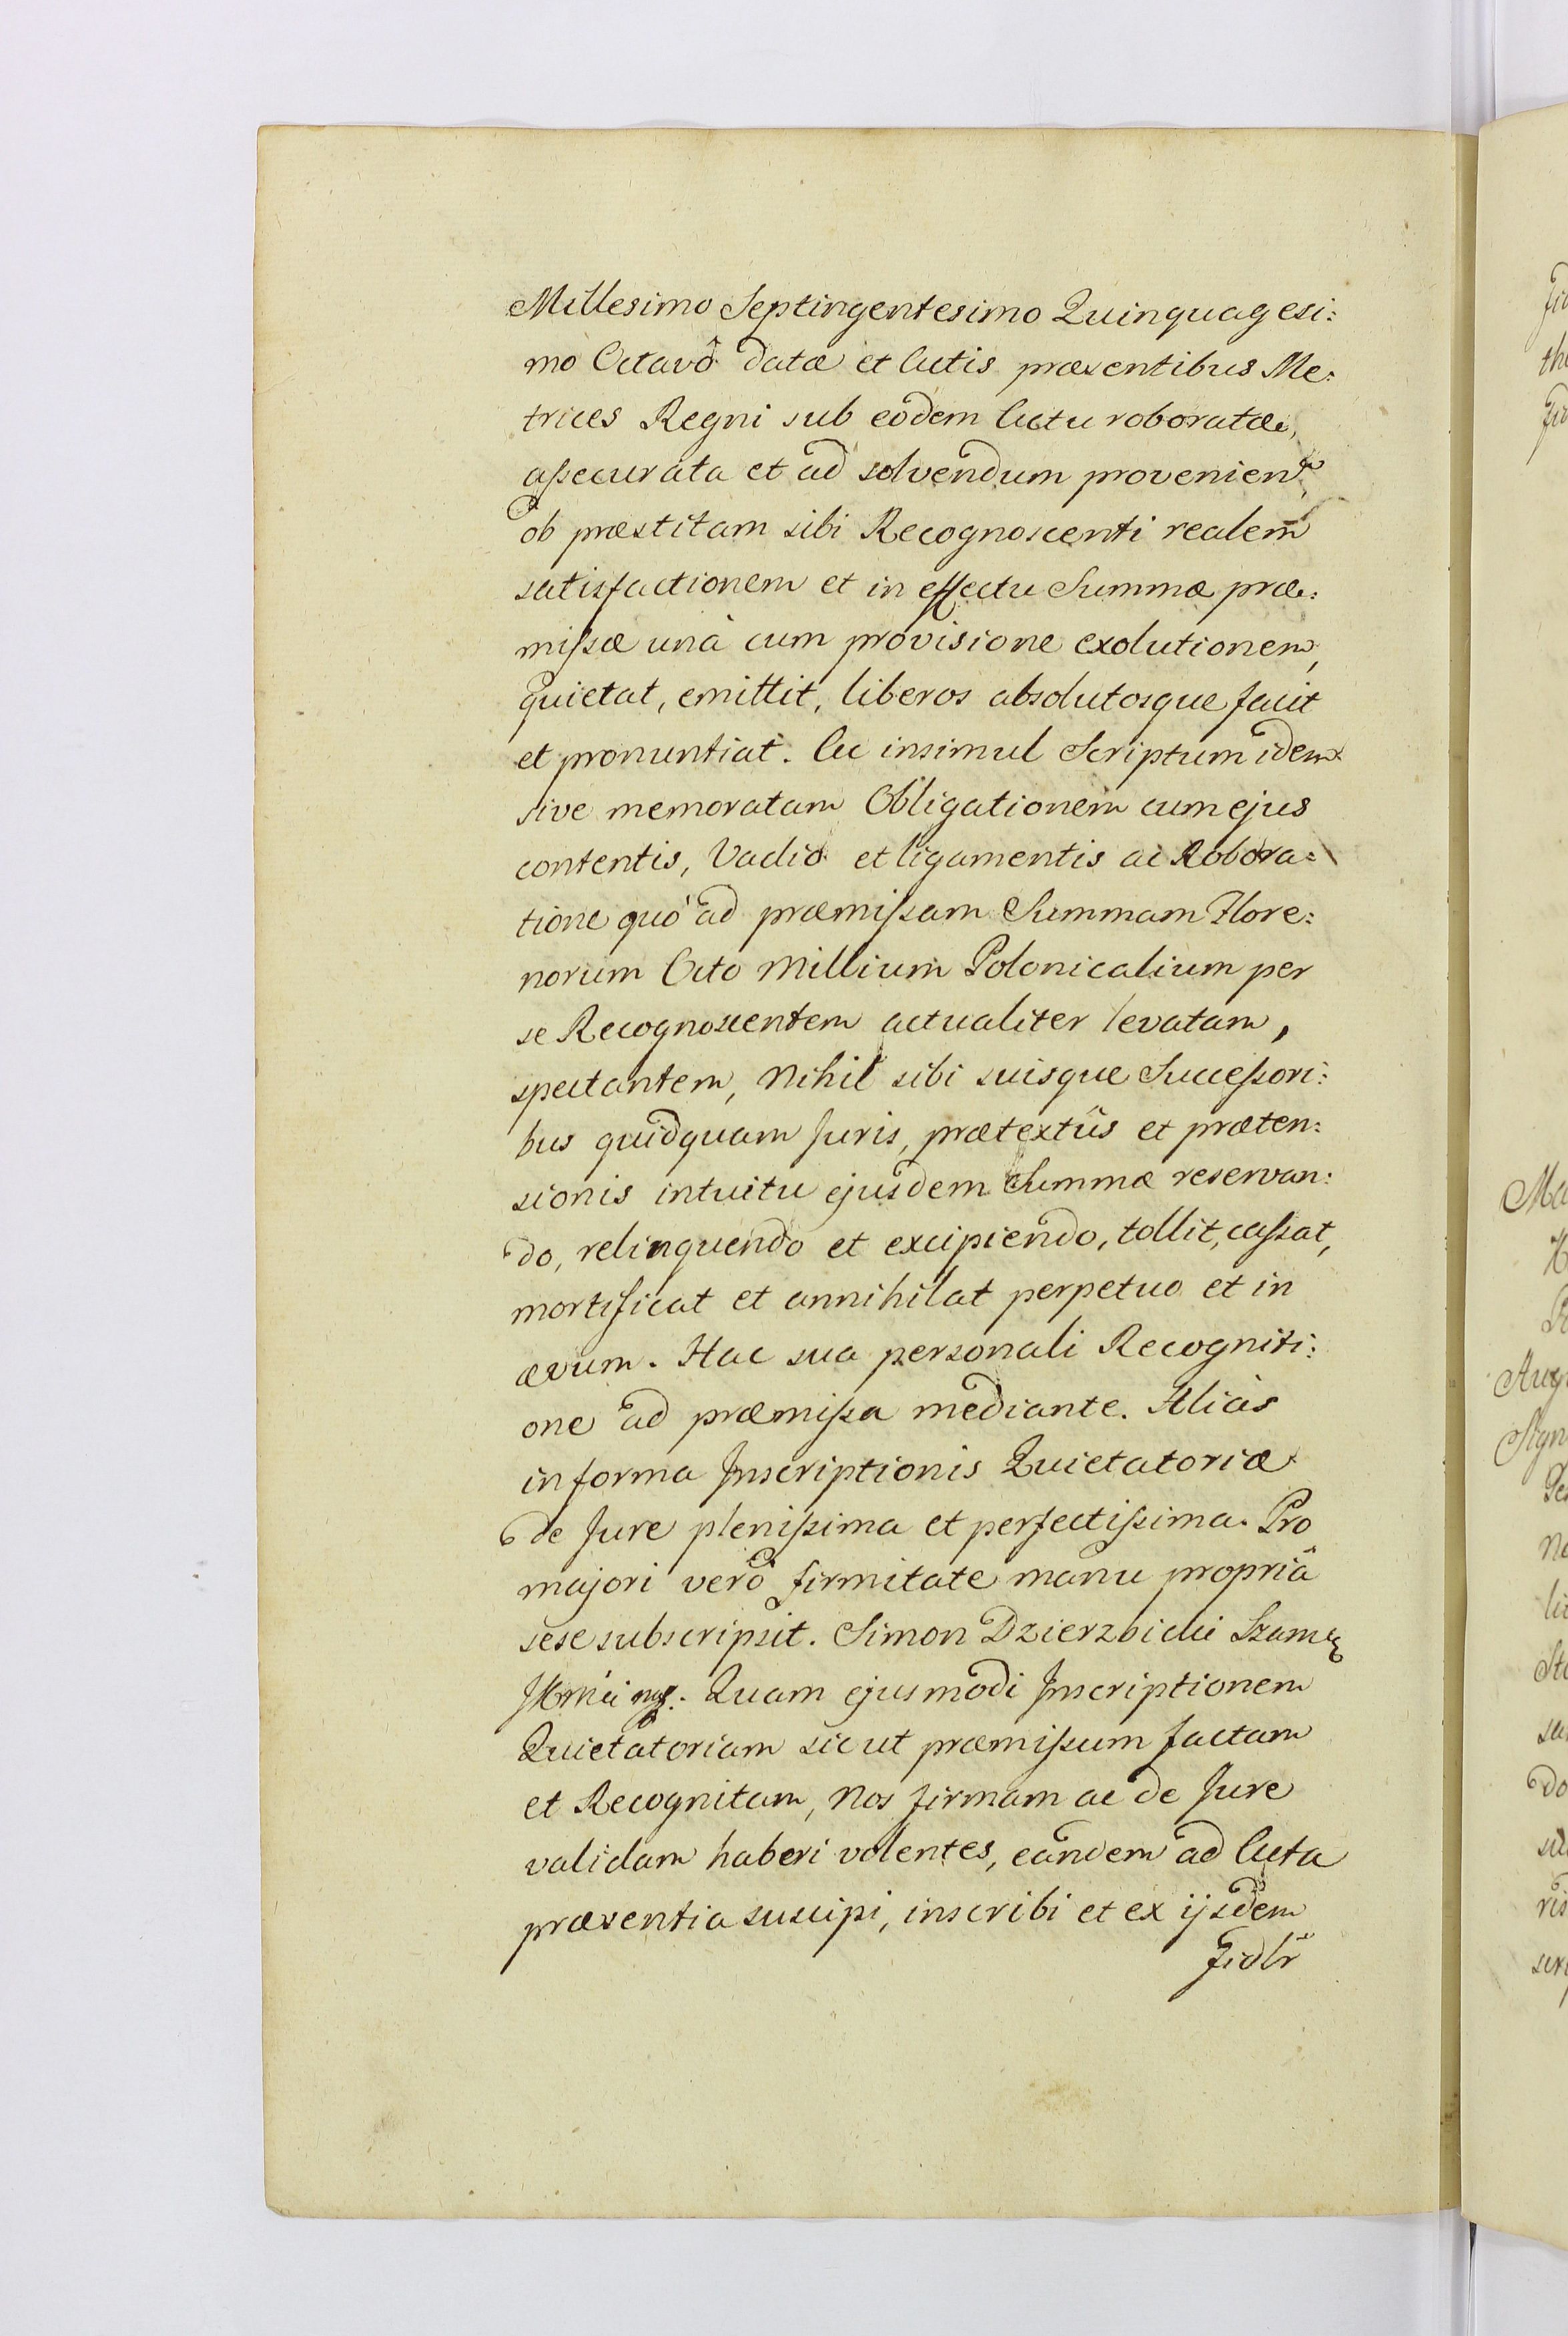 Millesimo Septingentesimo Quinquagesi:
mo Octavô datæ et Actis præsentibus Me:
trices Regni sub eodem Actu roboratæ,
aſsecurata et ad solvendum provenien
ob præstitam sibi Recognoscenti realem
satisfactionem et in effectu Summæ præ:
miſsæ unà cum provisione exolutionem,
quietat, emittit, liberos absolutosque facit
et pronuntiat. Ac insimul Scriptum idem
sive memoratam Obligationem cum ejus
contentis, Vadio et ligamentis ac Robora=
tione quo ad præmiſsam Summam Flore:
norum Octo Millium Polonicalium per
se Recognoscentem actualiter levatam,
spectantem, Nihil sibi suisque Succeſsori:
bus quidquam Juris, prætextûs et præten:
sionis intuitu ejusdem Summæ reservan:
do, relinquendo et excipiendo, tollit, caſsat,
mortificat et annihilat perpetuo et in
ævum. Hac sua personali Recogniti:
one ad præmiſsa mediante. Aliàs
in forma Inscriptionis Quietatoriæ
de Jure pleniſsima et perfectiſsima. Pro
majori verò firmitate manu propriâ
sese subscripsit. Simon Dzierzbicki
Quam ejusmodi Inscriptionem
Quietatoriam sicut præmiſsum factam
et Recognitam, Nos firmam ac de Jure
validam haberi volentes, eandem ad Acta
præsentia suscipi, inscribi et ex ijsdem